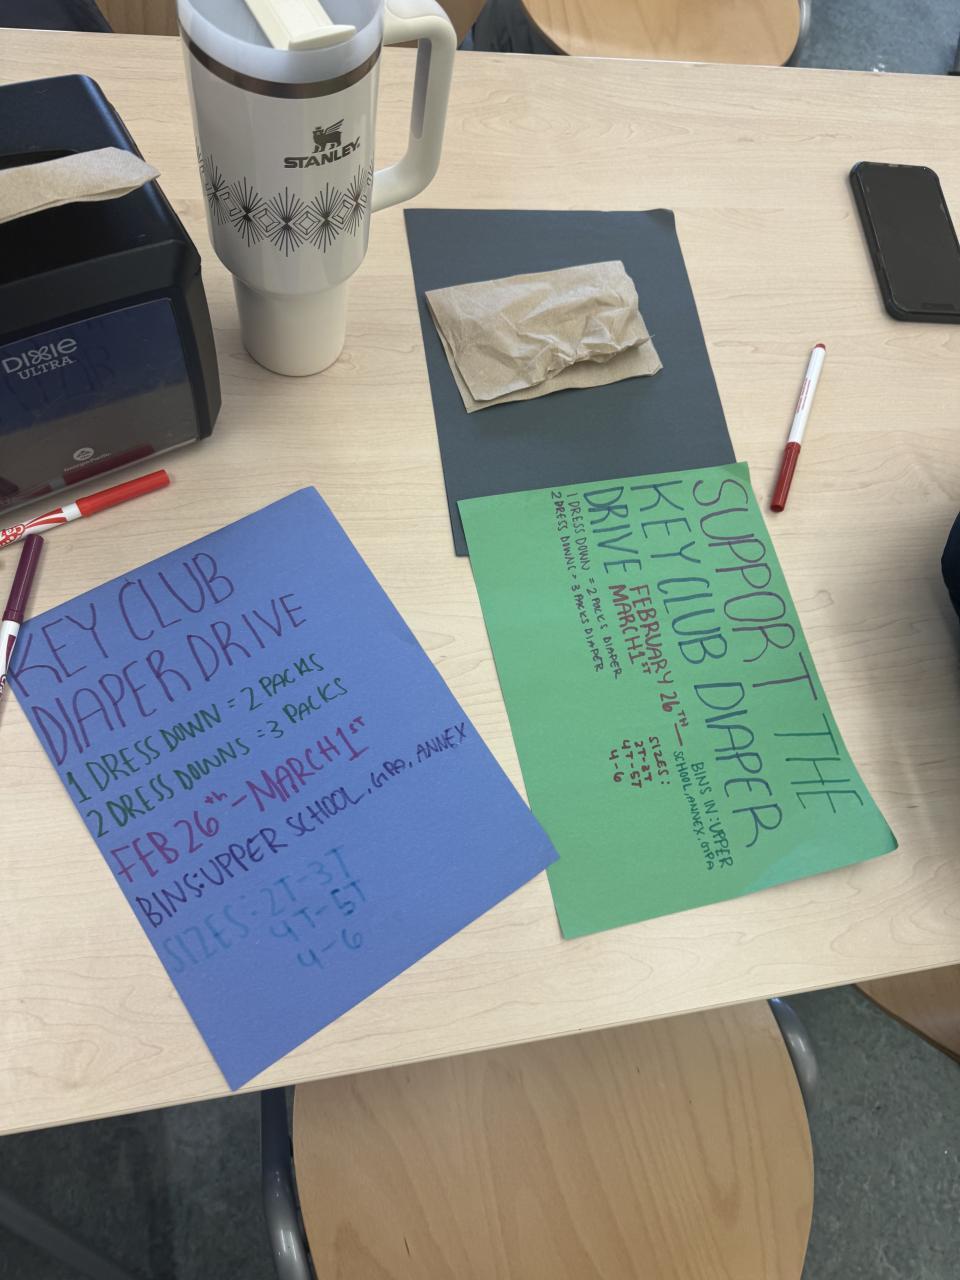 STANLEY
DIXIE
ULTRA
KEY CLUB
DIAPER DRIVE
1 DRESS DOWN = 2 PACKS
2 DRESS DOWNS = 3 PACKS
FEB 26th - MARCH 1ST
BINS: UPPER SCHOOL, GPA, ANNEX
SIZES: 2T-3T
4T-5T
4-6
SUPPORT THE
KEY CLUB DIAPER
DRIVE FEBRUARY 26TH -
MARCH 1ST
1 DRESS DOWN = 2 PACKS DIAPER
2 DRESS DOWNS = 3 PACKS DIAPER
BINS IN: UPPER
SCHOOL, ANNEX, GPA
SIZES:
2T-3T
4T-5T
4-6